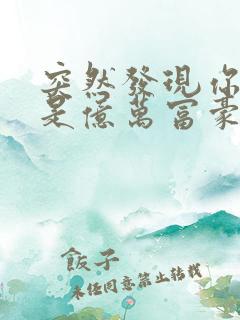 突然發現你
是億萬富豪
飯子
未經同意禁止轉載